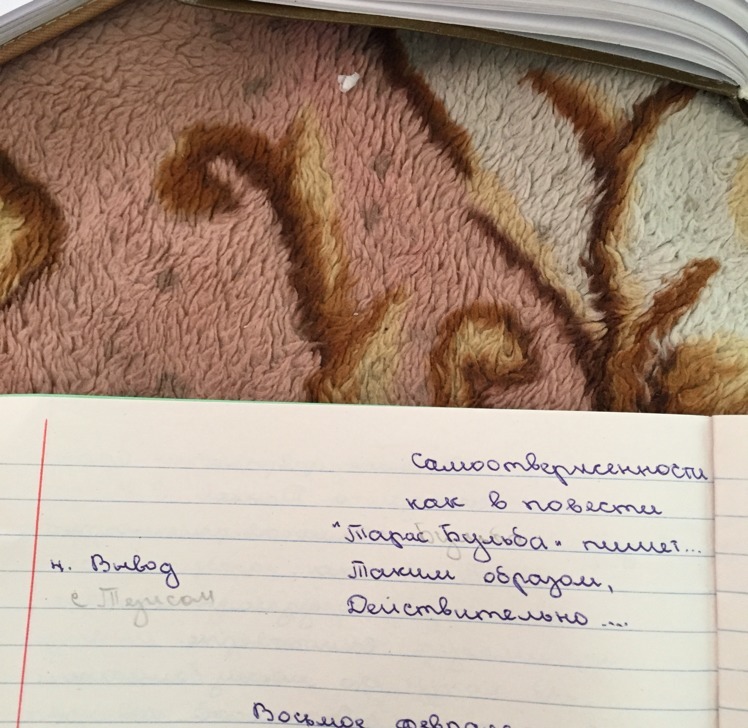 самоотверженности
как в повести
"Тарас Бульба" пишет...
4. Вывод Таким образом,
с Тезисом Действительно ....
Восьмое февраля